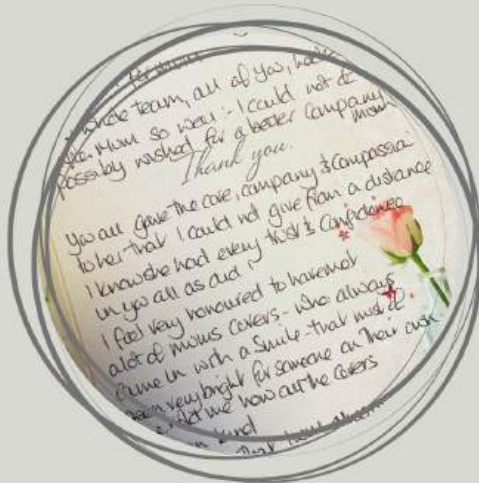 for mum
whole team, all of you,
Mum so well :- I could not
possibly wished for a better Company
mom
Thank you.
You all gave the care, company & Compassion
to her that I could not give from a distance
I know she had every trust & Confidence
in you all as did I
I feel very honoured to have met
alot of moms carers - who always
came in with a smile - that must of
been very bright for someone on their own
let me now all the carers
kind
that